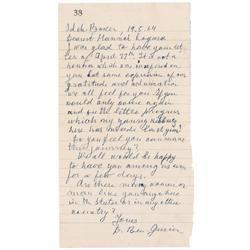 38
Sdeh-Boker, 19.5.64
Dearest Hannah
I was glad to have your let
ter of April 27th. It is not
on you
but some expression of our
gratitude and admiration
we all feel for you. If you
would only come again
and see the little progress
which my young
here has made
Do you feel you can make
this journey?
We all would be happy
to have you among us even
for a few days.
Are there many women or
men like you anywhere
in the States or in any other
country?
Yours
D. Ben Gurion